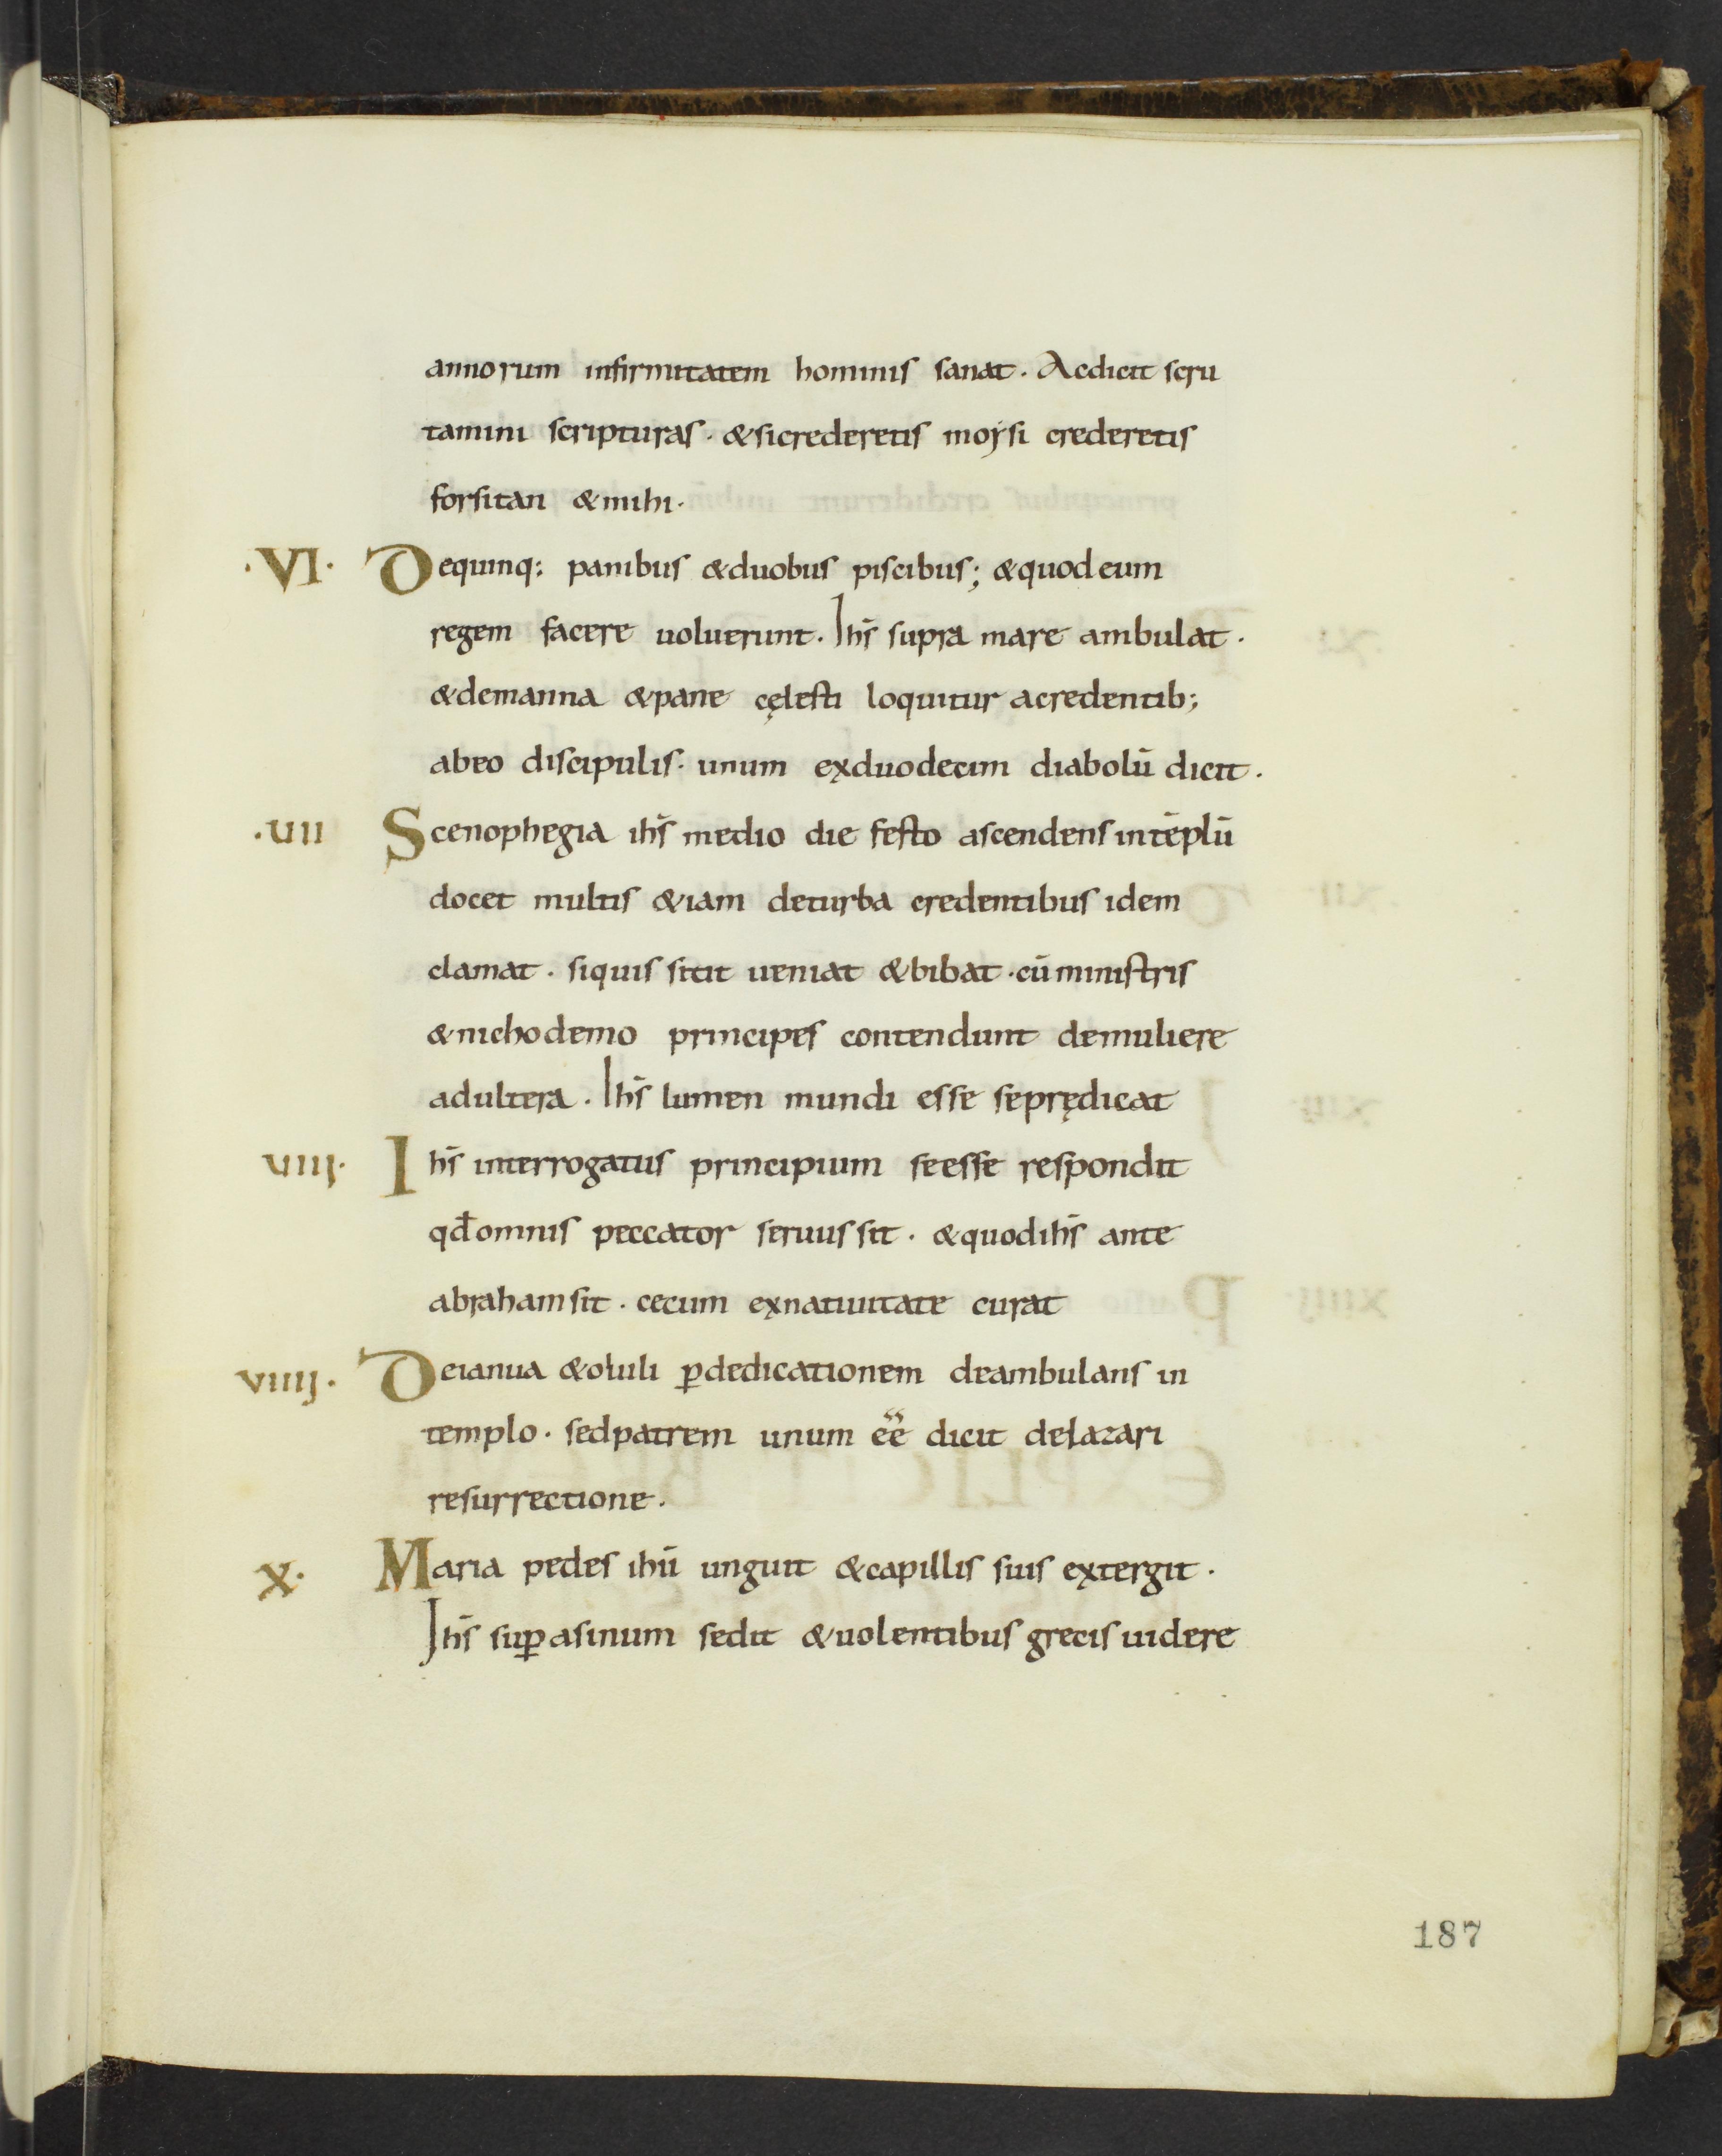 annorum infirmitatem hominis sanat. Acdicit scru
tamini scripturas. &sicrederetis moysi crederetis
forsitan &mihi.
.VI. Dequinq: panibus &duobus piscibus; &quodeum
regem facere uoluerunt. Ihs̄ supra mare ambulat.
&demanna &pane cęlesti loquitur acredentib;
abeo discipulis. unum exduodecim diabolū dicit.
.UII Scenophegia ihs̄ medio die festo ascendens intēplū
docet multis &iam deturba credentibus idem
clamat. siquis sitit ueniat &bibat. cū ministris
&nichodemo principes contendunt demuliere
adultera. Ihs̄ lumen mundi esse seprędicat
UIIJ. Ihs̄ interrogatus principium seesse respondit
qđomnis peccator seruus sit. &quodihs̄ ante
abrahamsit. cecum exnatiuitate curat
VIIIJ. Deianua &oluili ꝑdedicationem deambulans in
templo. sedpatrem unum ēē dicit delazari
resurrectione.
X. Maria pedes ihū unguit &capillis suis extergit.
Ihs̄ suꝑasinum sedit &uolentibus grecis uidere
187